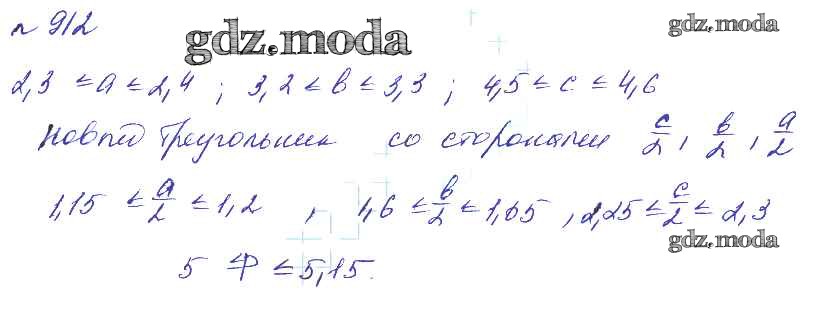 № 912
gdz.moda
gdz.moda
2,3 ≤ a ≤ 2,4 ; 3,2 ≤ в ≤ 3,3 ; 4,5 ≤ c ≤ 4,6
Новый треугольник со сторонами c/2, в/2, a/2
1,15 ≤ a/2 ≤ 1,2 , 1,6 ≤ в/2 ≤ 1,65 , 2,25 ≤ c/2 ≤ 2,3
gdz.moda
5 ≤ P ≤ 5,15.